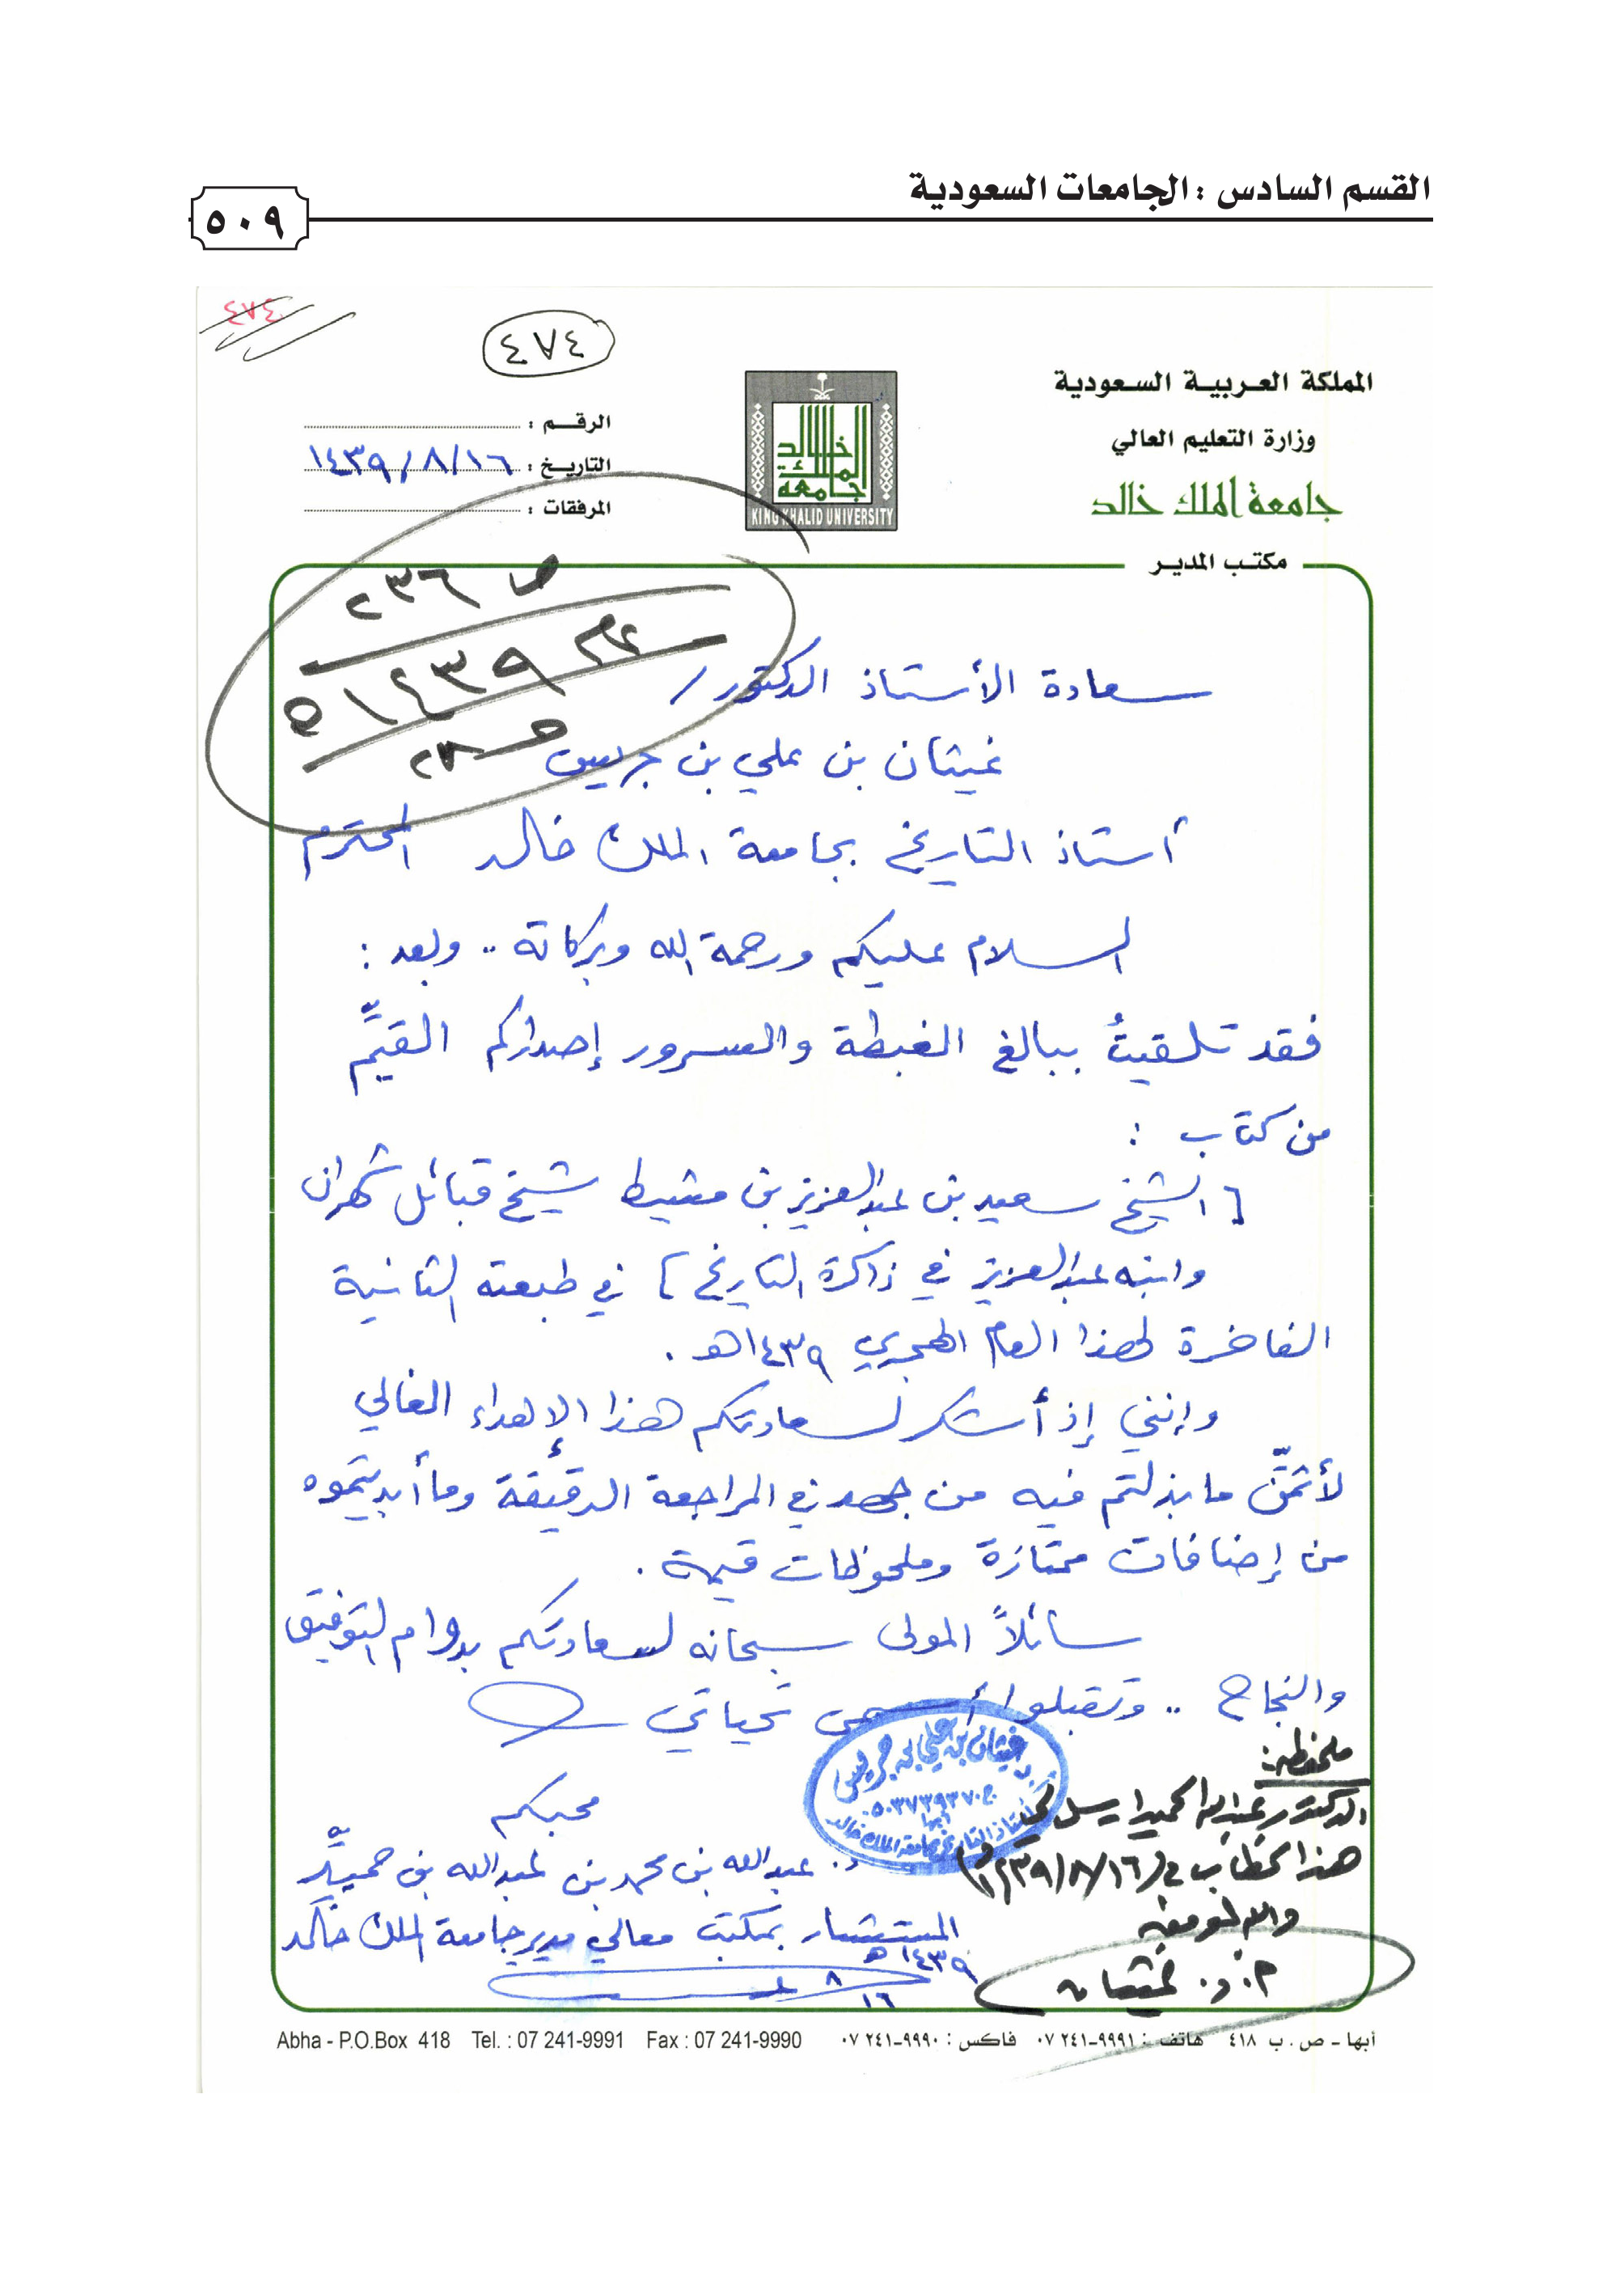 القسم السادس : الجامعات السعودية
٥٠٩
٤٧٤
٤٧٤
المملكة العربية السعودية
وزارة التعليم العالي
جامعة الملك خالد
مكتب المدير
جامعة الملك خالد
KING KHALID UNIVERSITY
الرقم :
التاريخ : ١٤٣٩/٨/١٦
المرفقات :
ص ٢٣٦
١٤٣٩
سعادة الأستاذ الدكتور /
غيثان بن علي بن جريس
أستاذ التاريخ بجامعة الملك خالد المحترم
السلام عليكم ورحمة الله وبركاته .. وبعد :
فقد تلقيتُ ببالغ الغبطة والسرور إصداركم القيِّم
من كتاب :
[ الشيخ سعيد بن عبدالعزيز بن مشيط شيخ قبائل شهران
وابنه عبدالعزيز في ذاكرة التاريخ ] في طبعته الثانية
الفاخرة لهذا العام الهجري ١٤٣٩هـ .
وإنني إذ أشكر لسعادتكم هذا الإهداء الغالي
لأثمّن ما بذلتم فيه من جهد في المراجعة الدقيقة وما أبديتموه
من إضافات ممتازة وملحوظات قيمة .
سائلاً المولى سبحانه لسعادتكم بدوام التوفيق
والنجاح .. وتقبلوا أسمى تحياتي
محبكم
د. عبدالله بن محمد بن عبدالله بن حميِّد
المستشار بمكتب معالي مدير جامعة الملك خالد
١٤٣٩هـ
٨
١٦
أ.د. غيثان بن علي بن جريس
ج ٠٥٠٣٧٣٩٣٧٠
أبها
أستاذ التاريخ بجامعة الملك خالد
ملحوظة :
الدكتور عبدالله الحميد ارسل لي
هذا الخطاب في (١٤٣٩/٨/١٦هـ)
والله الموفق
أ. د. غيثان
أبها - ص . ب ٤١٨ هاتف : ٩٩٩١-٢٤١ ٠٧ فاكس : ٩٩٩٠-٢٤١ ٠٧
Abha - P.O.Box 418 Tel. : 07 241-9991 Fax : 07 241-9990